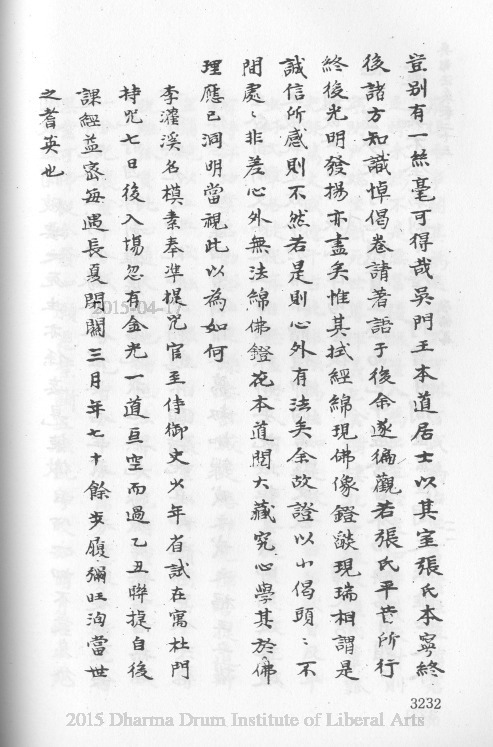 豈別有一絲毫可得哉吳門王本道居士以其室張氏本寧終
後諸方知識悼偈卷請著語于後余遂徧觀若張氏平昔所行
終後光明發揚亦盡矣惟其拭經綿現佛像鐙燄現瑞相謂是
誠信所感則不然若是則心外有法矣余故證以小偈頭〻不
間處〻非差心外無法綿佛鐙花本道閱大藏究心學其於佛
理應已洞明當視此以為如何
李灌溪名模素奉準提咒官至侍御史少年省試在寓杜門
持咒七日後入場忽有金光一道亘空而過乙丑聯捷自後
課經益密每遇長夏閉關三月年七十餘步履彌旺洵當世
之耆英也
2015-04-17
3232
2015 Dharma Drum Institute of Liberal Arts